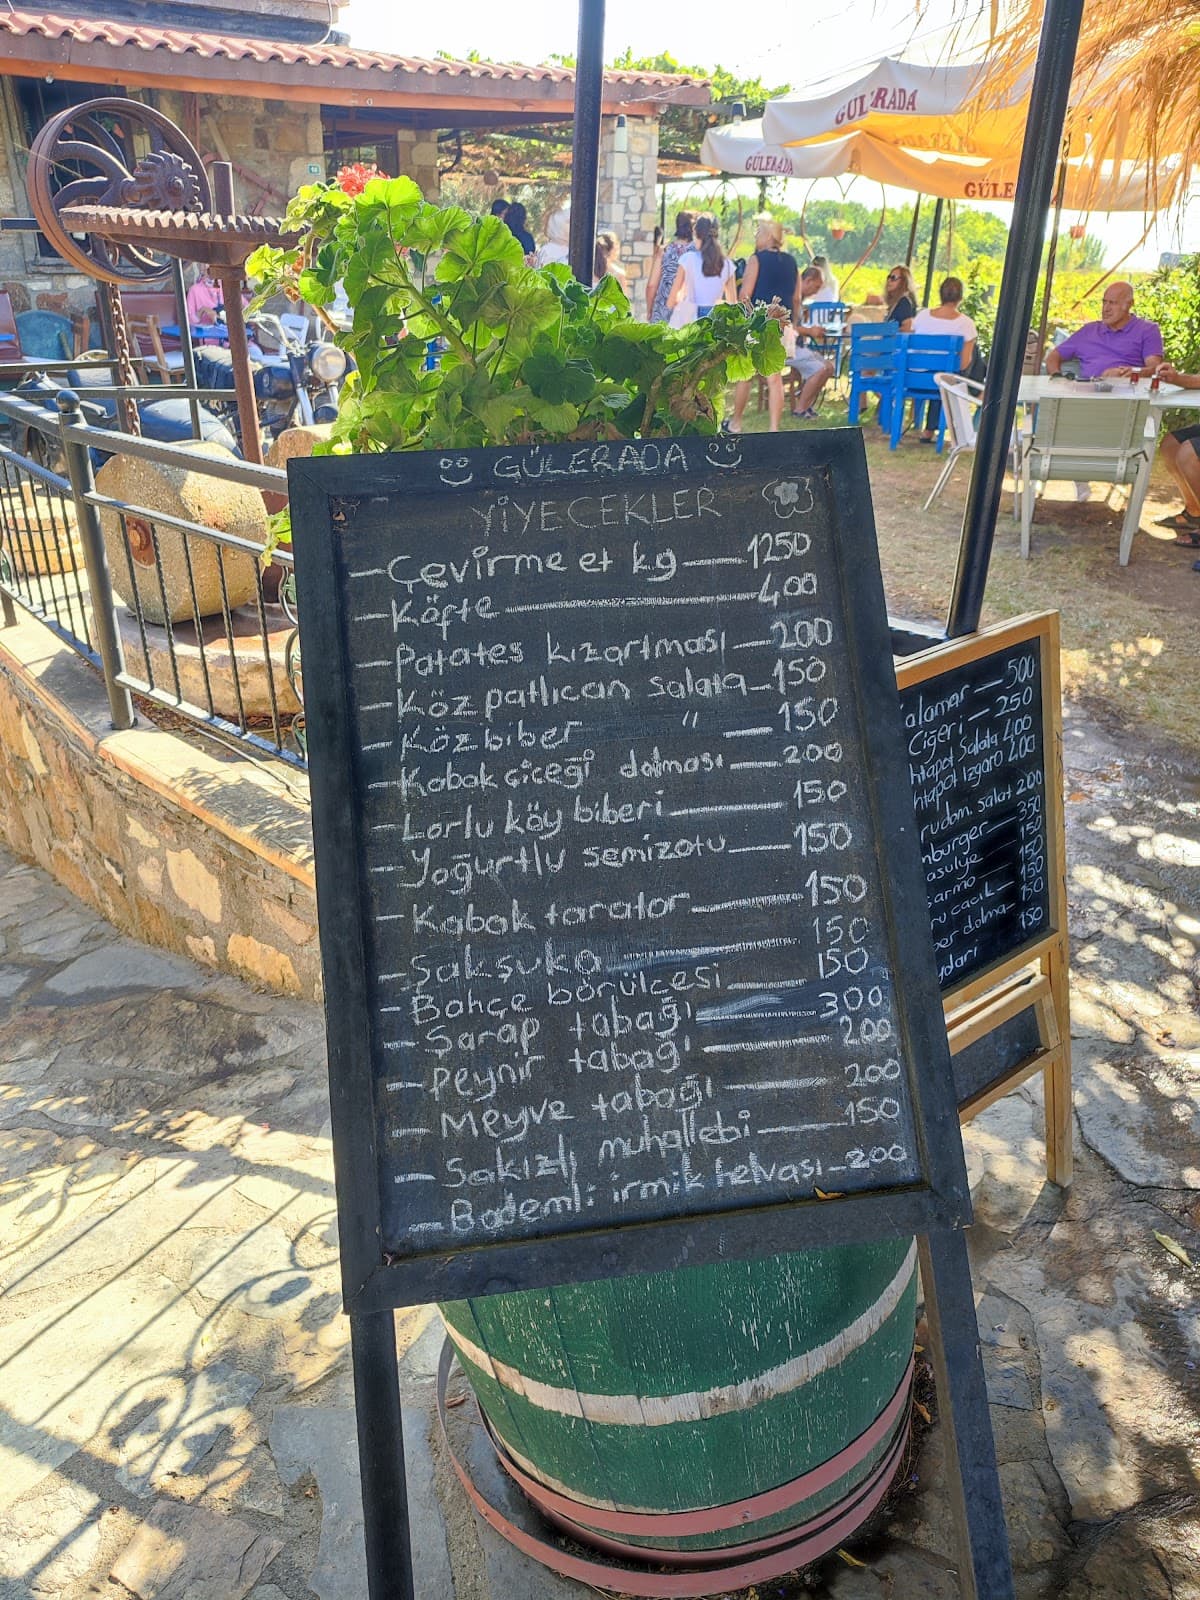 GÜLERADA
GÜLERADA
GÜLE
GÜLERADA
YİYECEKLER
- Çevirme et kg — 1250
- Köfte — 400
- Patates kızartması — 200
- Köz patlıcan salata - 150
- Köz biber " — 150
- Kabak çiçeği dolması — 200
- Lorlu köy biberi — 150
- Yoğurtlu semizotu — 150
- Kabak tarator — 150
- Şakşuka — 150
- Bahçe börülcesi — 150
- Şarap tabağı — 300
- Peynir tabağı — 200
- Meyve tabağı — 200
- Sakızlı muhallebi — 150
- Bademli irmik helvası - 200
alamar — 500
Ciğeri — 250
htapot Salata 400
htapot Izgara 400
rudom. salat 200
mburger — 350
asulye — 150
sarma — 150
ru cacık — 150
ber dolma - 150
ydari